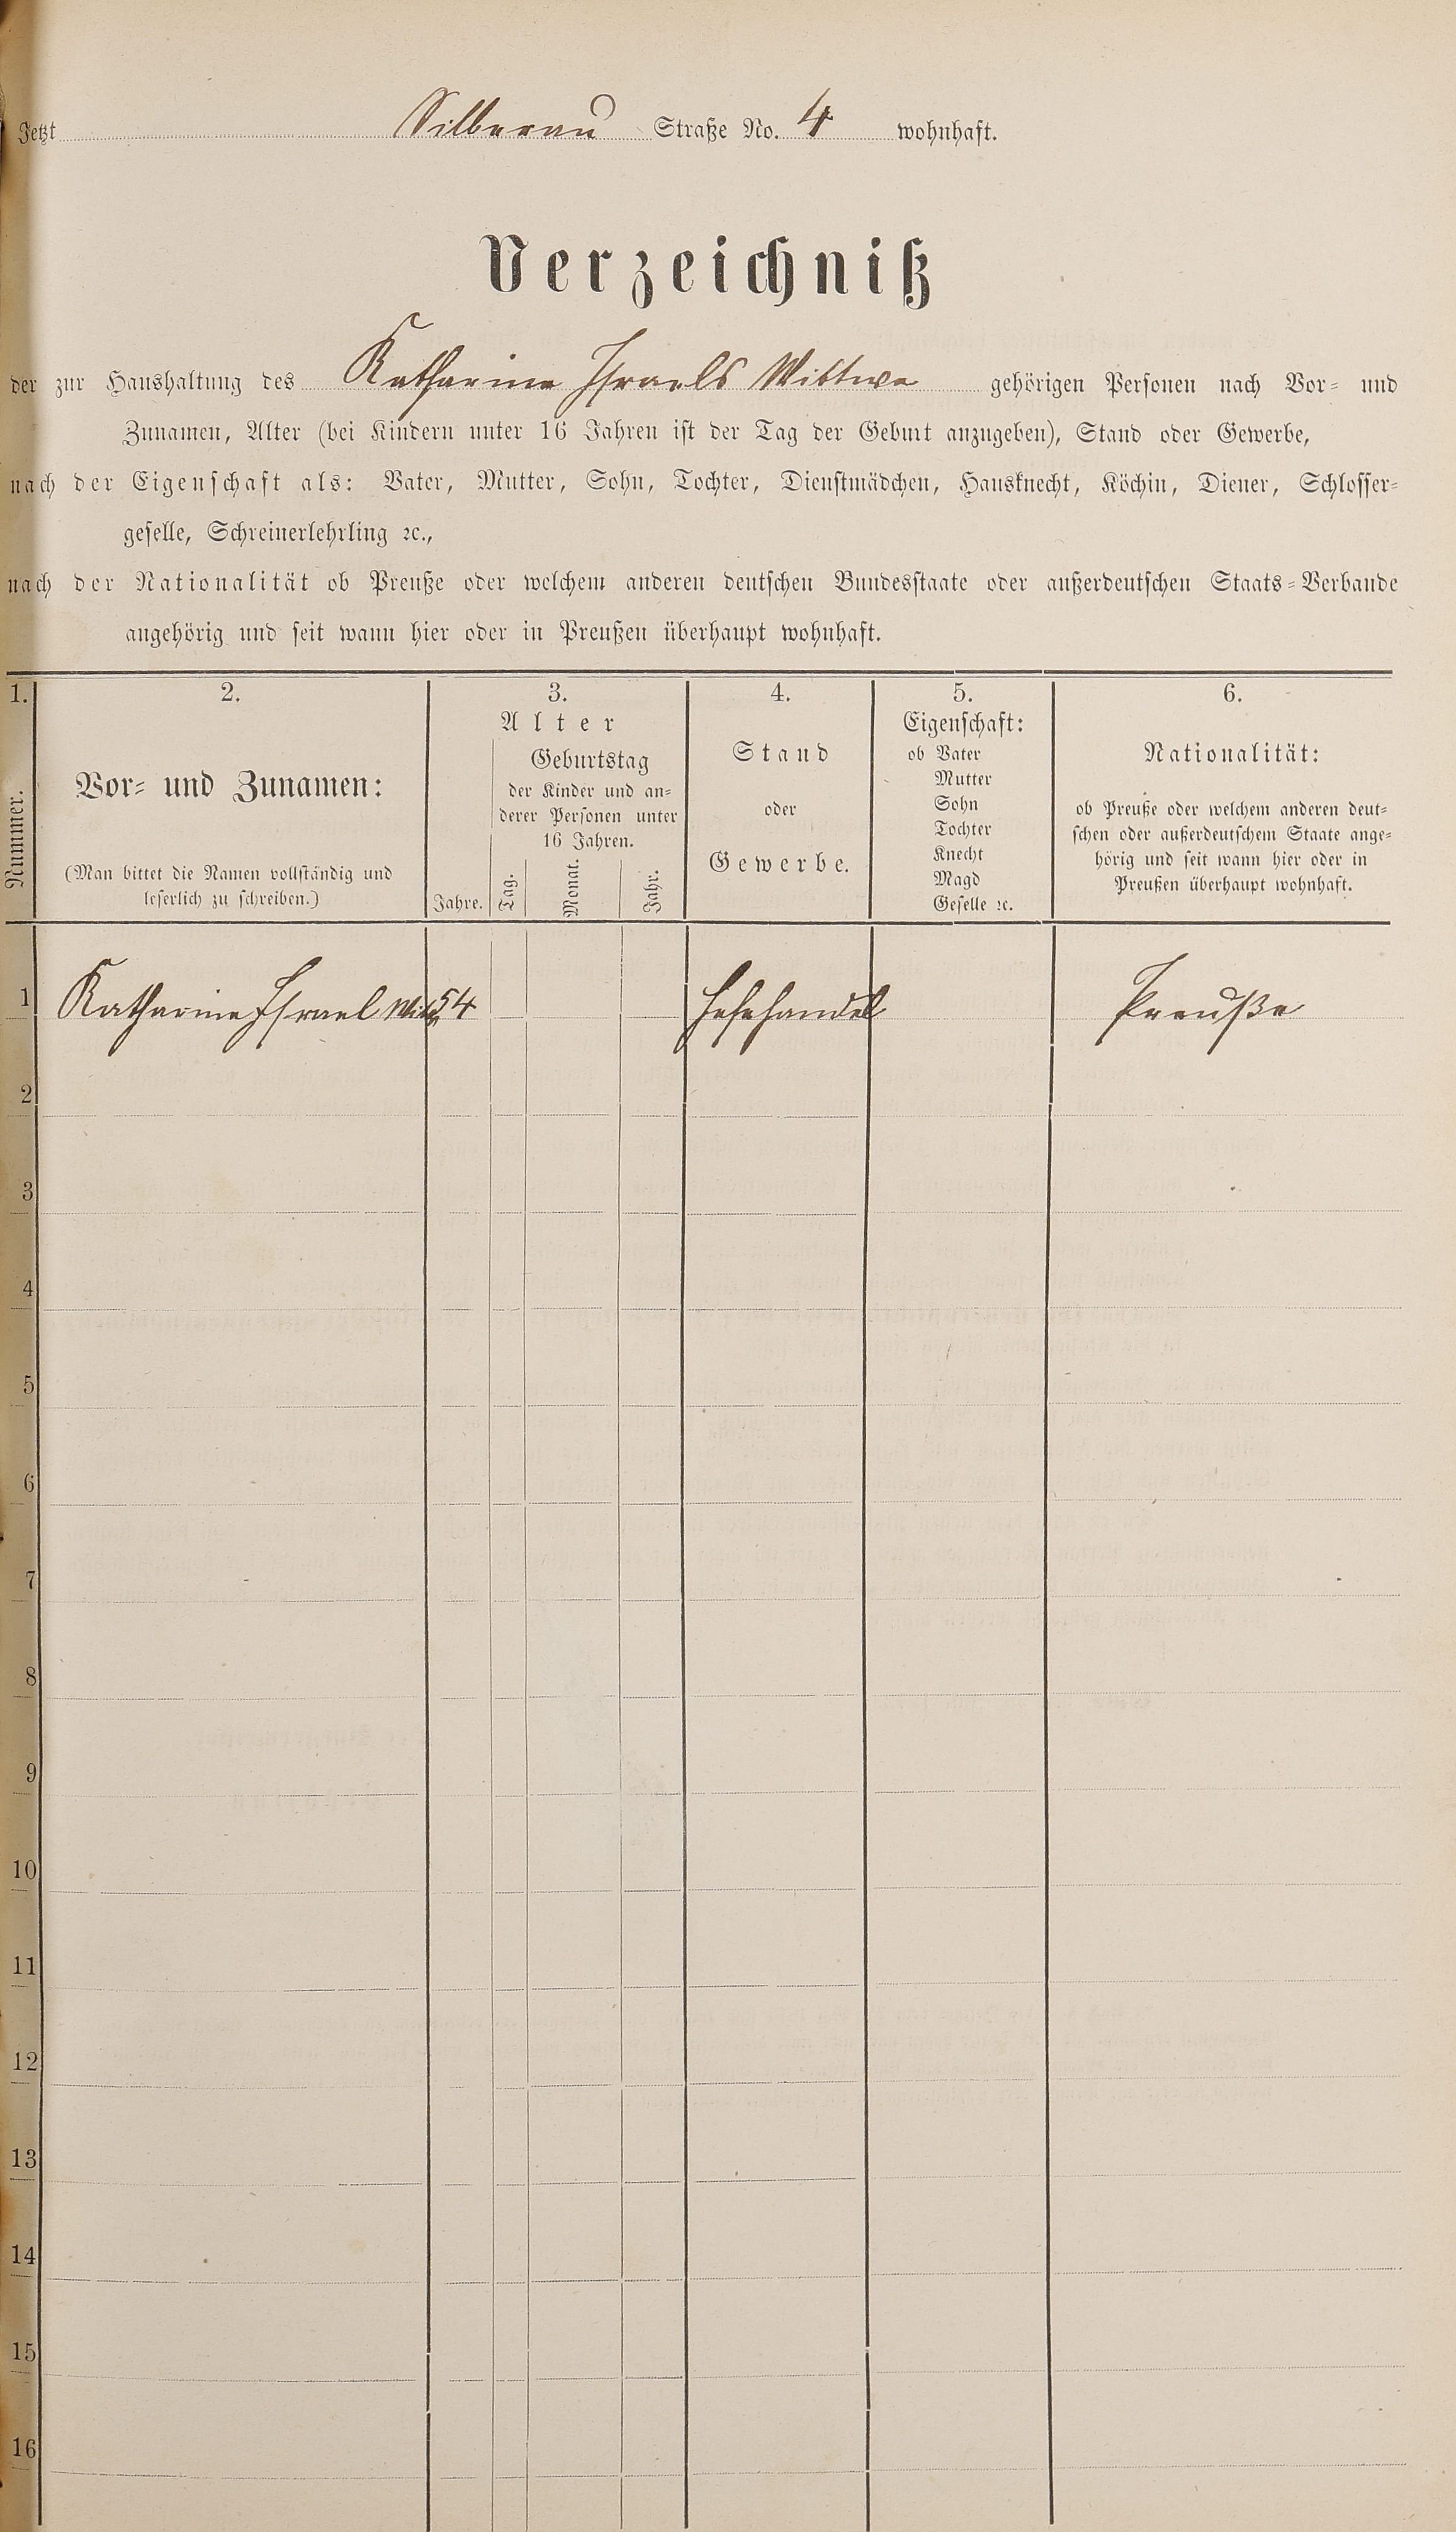 Jetzt Silberau Straße No. 4 wohnhaft.
Verzeichniß
der zur Haushaltung des Katharine Israels Wittwe gehörigen Personen nach Vor- und
Zunamen, Alter (bei Kindern unter 16 Jahren ist der Tag der Geburt anzugeben), Stand oder Gewerbe,
nach der Eigenschaft als: Vater, Mutter, Sohn, Tochter, Dienstmädchen, Hausknecht, Köchin, Diener, Schlosser-
geselle, Schreinerlehrling ꝛc.,
nach der Nationalität ob Preuße oder welchem anderen deutschen Bundesstaate oder außerdeutschen Staats-Verbande
angehörig und seit wann hier oder in Preußen überhaupt wohnhaft.
1. 2. 3. 4. 5. 6.
Nummer.
Vor- und Zunamen:
(Man bittet die Namen vollständig und
leserlich zu schreiben.)
Alter
Geburtstag
der Kinder und an-
derer Personen unter
16 Jahren.
Jahre. Tag. Monat. Jahr.
Stand
oder
Gewerbe.
Eigenschaft:
ob Vater
Mutter
Sohn
Tochter
Knecht
Magd
Geselle ꝛc.
Nationalität:
ob Preuße oder welchem anderen deut-
schen oder außerdeutschem Staate ange-
hörig und seit wann hier oder in
Preußen überhaupt wohnhaft.
1 Katharine Israel Witw 54 Hefehandel Preuße
2
3
4
5
6
7
8
9
10
11
12
13
14
15
16